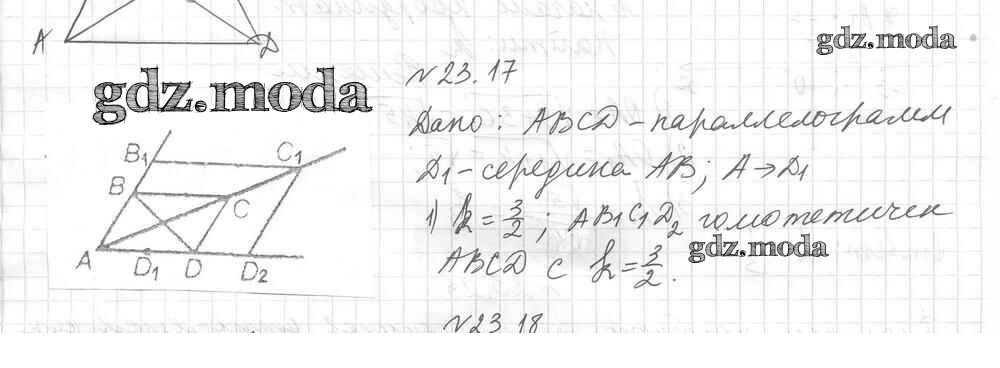 A D
gdz.moda
gdz.moda
№23.17
Дано: ABCD – параллелограмм
D₁ – середина AB; A→D₁
1) k = 3/2; AB₁C₁D₂ гомотетичен
ABCD с k = 3/2.
gdz.moda
B₁ C₁
B C
A D₁ D D₂
№23.18